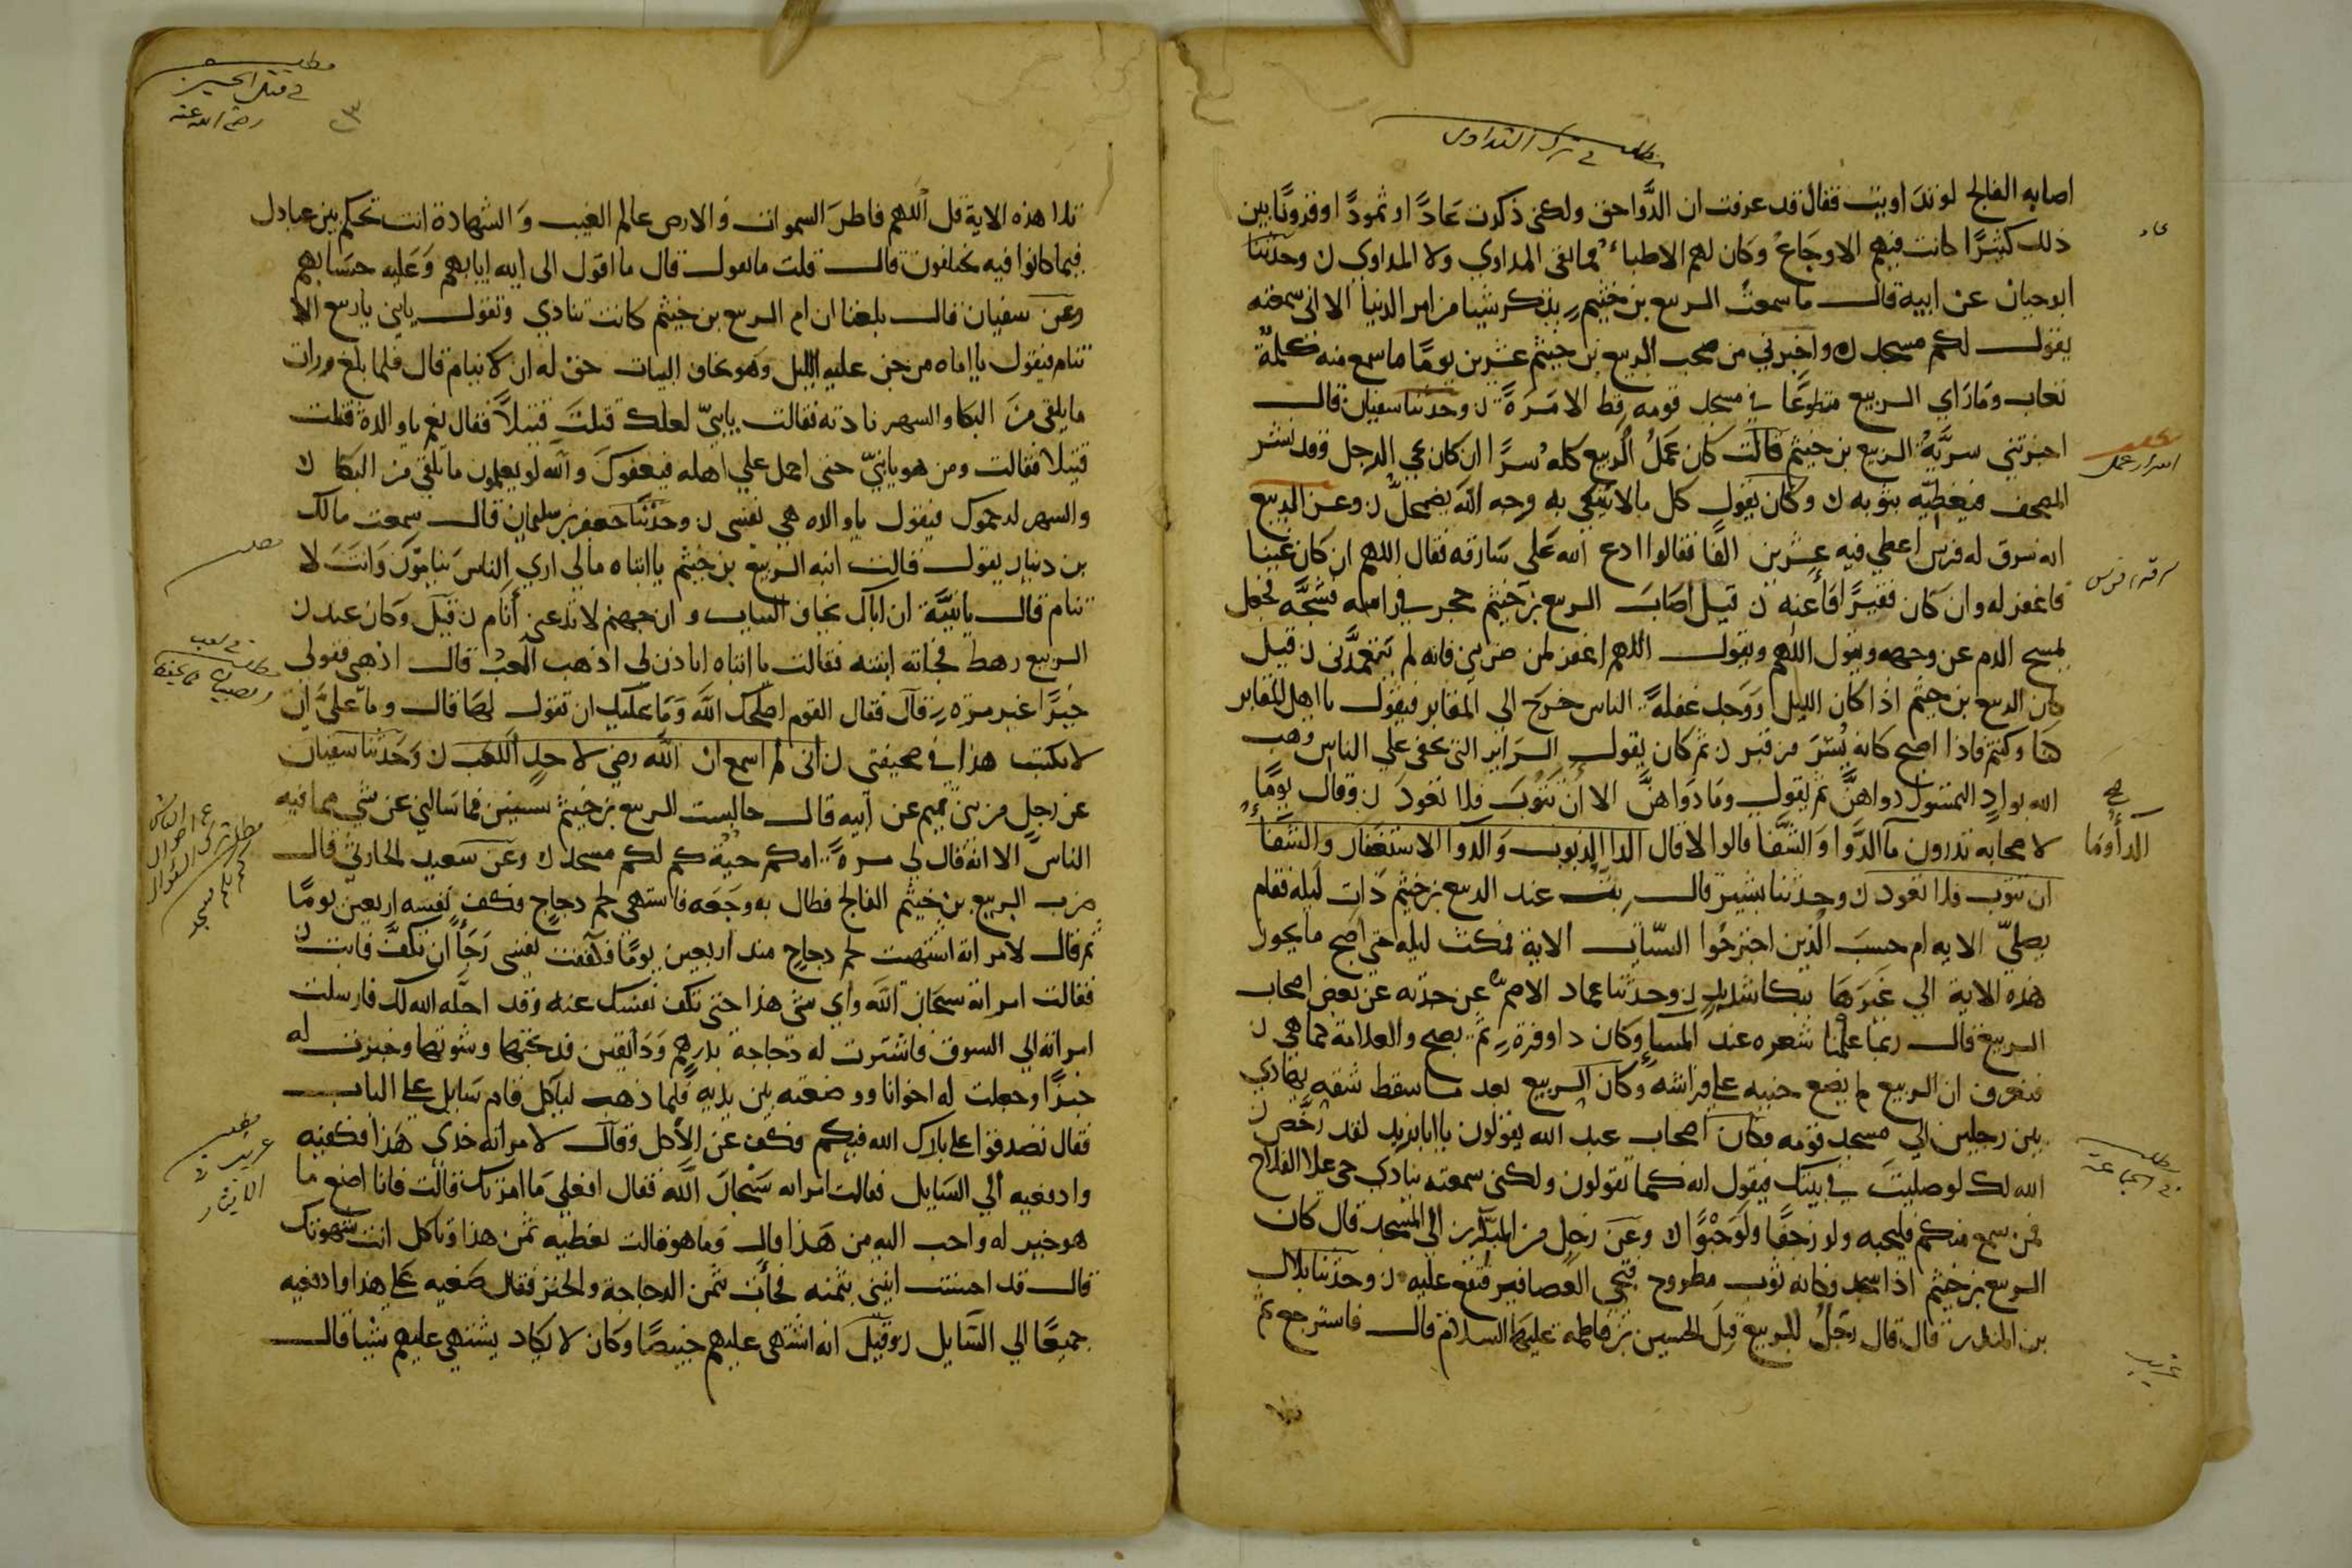 مطلب في ترك التداوى
اصابه الفالج لو تداويت فقال قد عرفت ان الدَّوا حق ولكني ذكرت عَادًا او ثمودًا او قرونًا بين
ذلك كثيرًا كانت فيهم الاوجَاعُ وكان لهم الاطباءُ فما بقي المداوي ولا المداوى ن وحدثنا
ابو حيان عن ابيه قال ما سمعت الربيع بن خيثم يذكر شيئا من امر الدنيا الا اني سمعته
يقول لكم مسجد ن واخبرني من صحب الربيع بن خيثم عشرين يومًا ما سمع منه كلمة
تعاب وما رَاي الربيع متطوعًا في مسجد قومه قط الا مَرةً ن وحدثنا سفيان قال
اخبرتني سريَّةُ الربيع بن خيثم قالت كان عَمَلُ الربيع كله سرًا ان كان يجي الرجل وقد نشر
المصحف فيغطيه بثوبه ن وكان يقول كل ما لا يبتغي به وجه الله يضمحل ن وعن الربيع
انه سرق له فرس اعطي فيه عشرين الفًا فقالوا ادع الله على سَارقه فقال اللهم ان كان غنيا
فاغفر له وان كان فقيرًا فأغنه ن قيل اصَابَ الربيع بن خيثم حجر في راسه فشجَّه فجعل
يمسح الدم عن وجهه ويقول اللهم اغفر لمن ضربني فانه لم يتعمدَّني ن قيل
كان الربيع بن خيثم اذا كان الليل وَوَجد غفلةً الناس خرج الى المقابر فيقول يا اهل المقابر
كنا وكنتم فاذا اصبح كانه نُشرَ من قبر ن ثم كان يقول السرَاير التي تخفى على الناس وهب
الله بوادٍ التمسُوا دواهنَّ ثم يقول وما دَواهنَّ الا ان تَتوبَ فلا تعودَ ن وقال يومًا
لاصحابه تدرون ما الدَّوا والشفا قالوا لا قال الدا الذنوب والدوا الاستغفار والشفا
ان تتوب فلا تعود ن وحدثنا بشير قال بتُّ عند الربيع بن خيثم ذات ليله فقام
يصليّ الايه ام حسبَ الذين اجترحُوا السيّات الاية فمكث ليله حتى اصبح ما يجوز
هذه الاية الي غيرها ببكا شديد ن وحدثنا عماد الاصم عن حدثه عن بعض اصحاب
الربيع قال ربما علمنا شعره عند المساء وكان ذا وفرة ثم يصبح والعلامة كما هي ن
فنعرف ان الربيع لم يضع جنبه على فراشه وكان الربيع بعد ما سقط شقه يهادي
بين رجلين الي مسجد قومه وكان اصحاب عبد الله يقولون يا ابا يزيد لقد رخَّص ن
الله لك لو صليت في بيتك فيقول انه كما تقولون ولكني سمعته ينادي حي علا الفلاح
فمن سمع منكم فليجبه ولو زحفًا ولو حَبْوًا ن وعن رجل من الى المسجد قال كان
الربيع بن خيثم اذا سجد فكانه ثوب مطروح فتجي العصافير فتقع عليه ن وحدثنا بلال
بن المنذر قال قال رجلٌ للربيع قُتِلَ الحسين بن فاطمه عليهما السلام قال فاسترجع ثم
اسرار عمل
سرقة فرس
صح
الدأ وما
مطلب في الجماعة
مطلب في قتل الحسين رضي الله عنه
تلا هذه الاية قل اللهم فاطرَ السموات والارض عالم الغيب وَالشهادة انت تحكم بين عبادك
فيما كانوا فيه يختلفون قال قلت ما تقول قال ما اقول الى الله ايابهم وَعَليه حسَابهم
وعن سفيان قال بلغنا ان ام الربيع بن خيثم كانت تنادي وتقول يابني يا ربيع الا
تنام فيقول يا اماه من جن عليه الليل وهو يخاف البيات حقَّ له ان لا ينام قال فلما بلغ ورات
ما يلقى منَ البكا والسهر نادته فقالت يا بنيّ لعلك قتلتَ قتيلاً فقال نعم يا والدة قتلت
قتيلا فقالت ومن هو يا بنيّ حتى احمل على اهله فيعفوكَ والله لو يعلمون ما تلقى من البكا ن
والسهر لرحموك فيقول يا والده هي نفسى ن وحدثنا جعفر بن سليمان قال سمعت مالك
بن دينار يقول قالت ابنه الربيع بن خيثم يا ابتاه مالي اري الناس يَنامُوَن وَانتَ لا
تنام قال يا بنيَّة ان اباك يخاف البيات و ان جهنم لا تدعني أنام ن قيل وكان عند ن
الربيع رهط فجاته ابنته فقالت يا ابتاه اتاذن لي اذهب العبُ قال اذهبي فقولى
خيرًا غير مرَّه قال فقال القوم اصلحك الله وما عليك ان تقول لهَا قال وما عليَّ ان
لا يكتب هذا في صحيفتي ن انى لم اسمع ان الله رضي لاحدٍ اللعب ن وحدثنا سفيان
عن رجل من بني تميم عن ابيه قال جالست الربيع بن خيثم سنين فما سَالني عن شي مما فيه
الناس الا انه قال لي مرةً امكم حيّة كم لكم مسجد ن وعن سَعيد الحارثي قال
ضرب الربيع بن خيثم الفالج فطال به وجَعه فاشتهى لحم دجاج فكف نفسه اربعين يومًا
ثم قال لامراته اشتهيت لحم دجاج منذ اربعين يومًا فكففت نفسى رَجَاءً ان تكفَّ فابت ن
فقالت امراته سبحان الله واي شى هذا حتى تكف نفسك عنه وقد احله الله لك فارسلت
امراته الي السوق فاشترت له دجاجة بدرهم وَدَانقين فذبحتها وشوتها وخبزت له
خبزًا وجعلت له اخوانا ووضعته بين يديه فلما ذهب لياكل قام سَايل على الباب
فقال تصدقوا علي بارك الله فيكم فكف عن الأكل وقال لامراته خذى هَذا فكفنيه
وادفعيه الي السَايل فقالت امراته سَبْحانَ الله فقال افعلي مَا امرتك قالت فانا اصنع ما
هو خير له واحب اليه من هَذا قال وما هو قالت نعطيه ثمن هذا وتاكل انت شهوتك
قال قد احسنت ايتني بثمنه فجأت بثمن الدجاجة والخبز فقال ضَعيه عَلى هذا وادفعيه
جميعًا الي السَّايل ن وقيلَ انه اشتهى عليهم خبيصًا وكان لا يكاد يشتهي عليهم شيًا قال